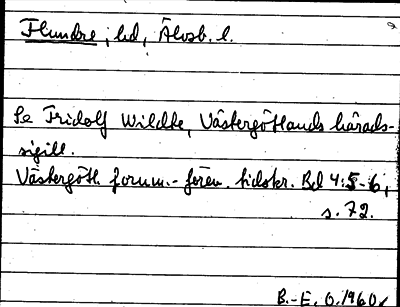 Flundre, hd, Älvsb. l.
Se Fridolf Wildte, Västergötlands härads-
sigill.
Västergötl. fornm.-fören. tidskr. Bd 4:5-6,
s. 72.
B.-E. O. 1960